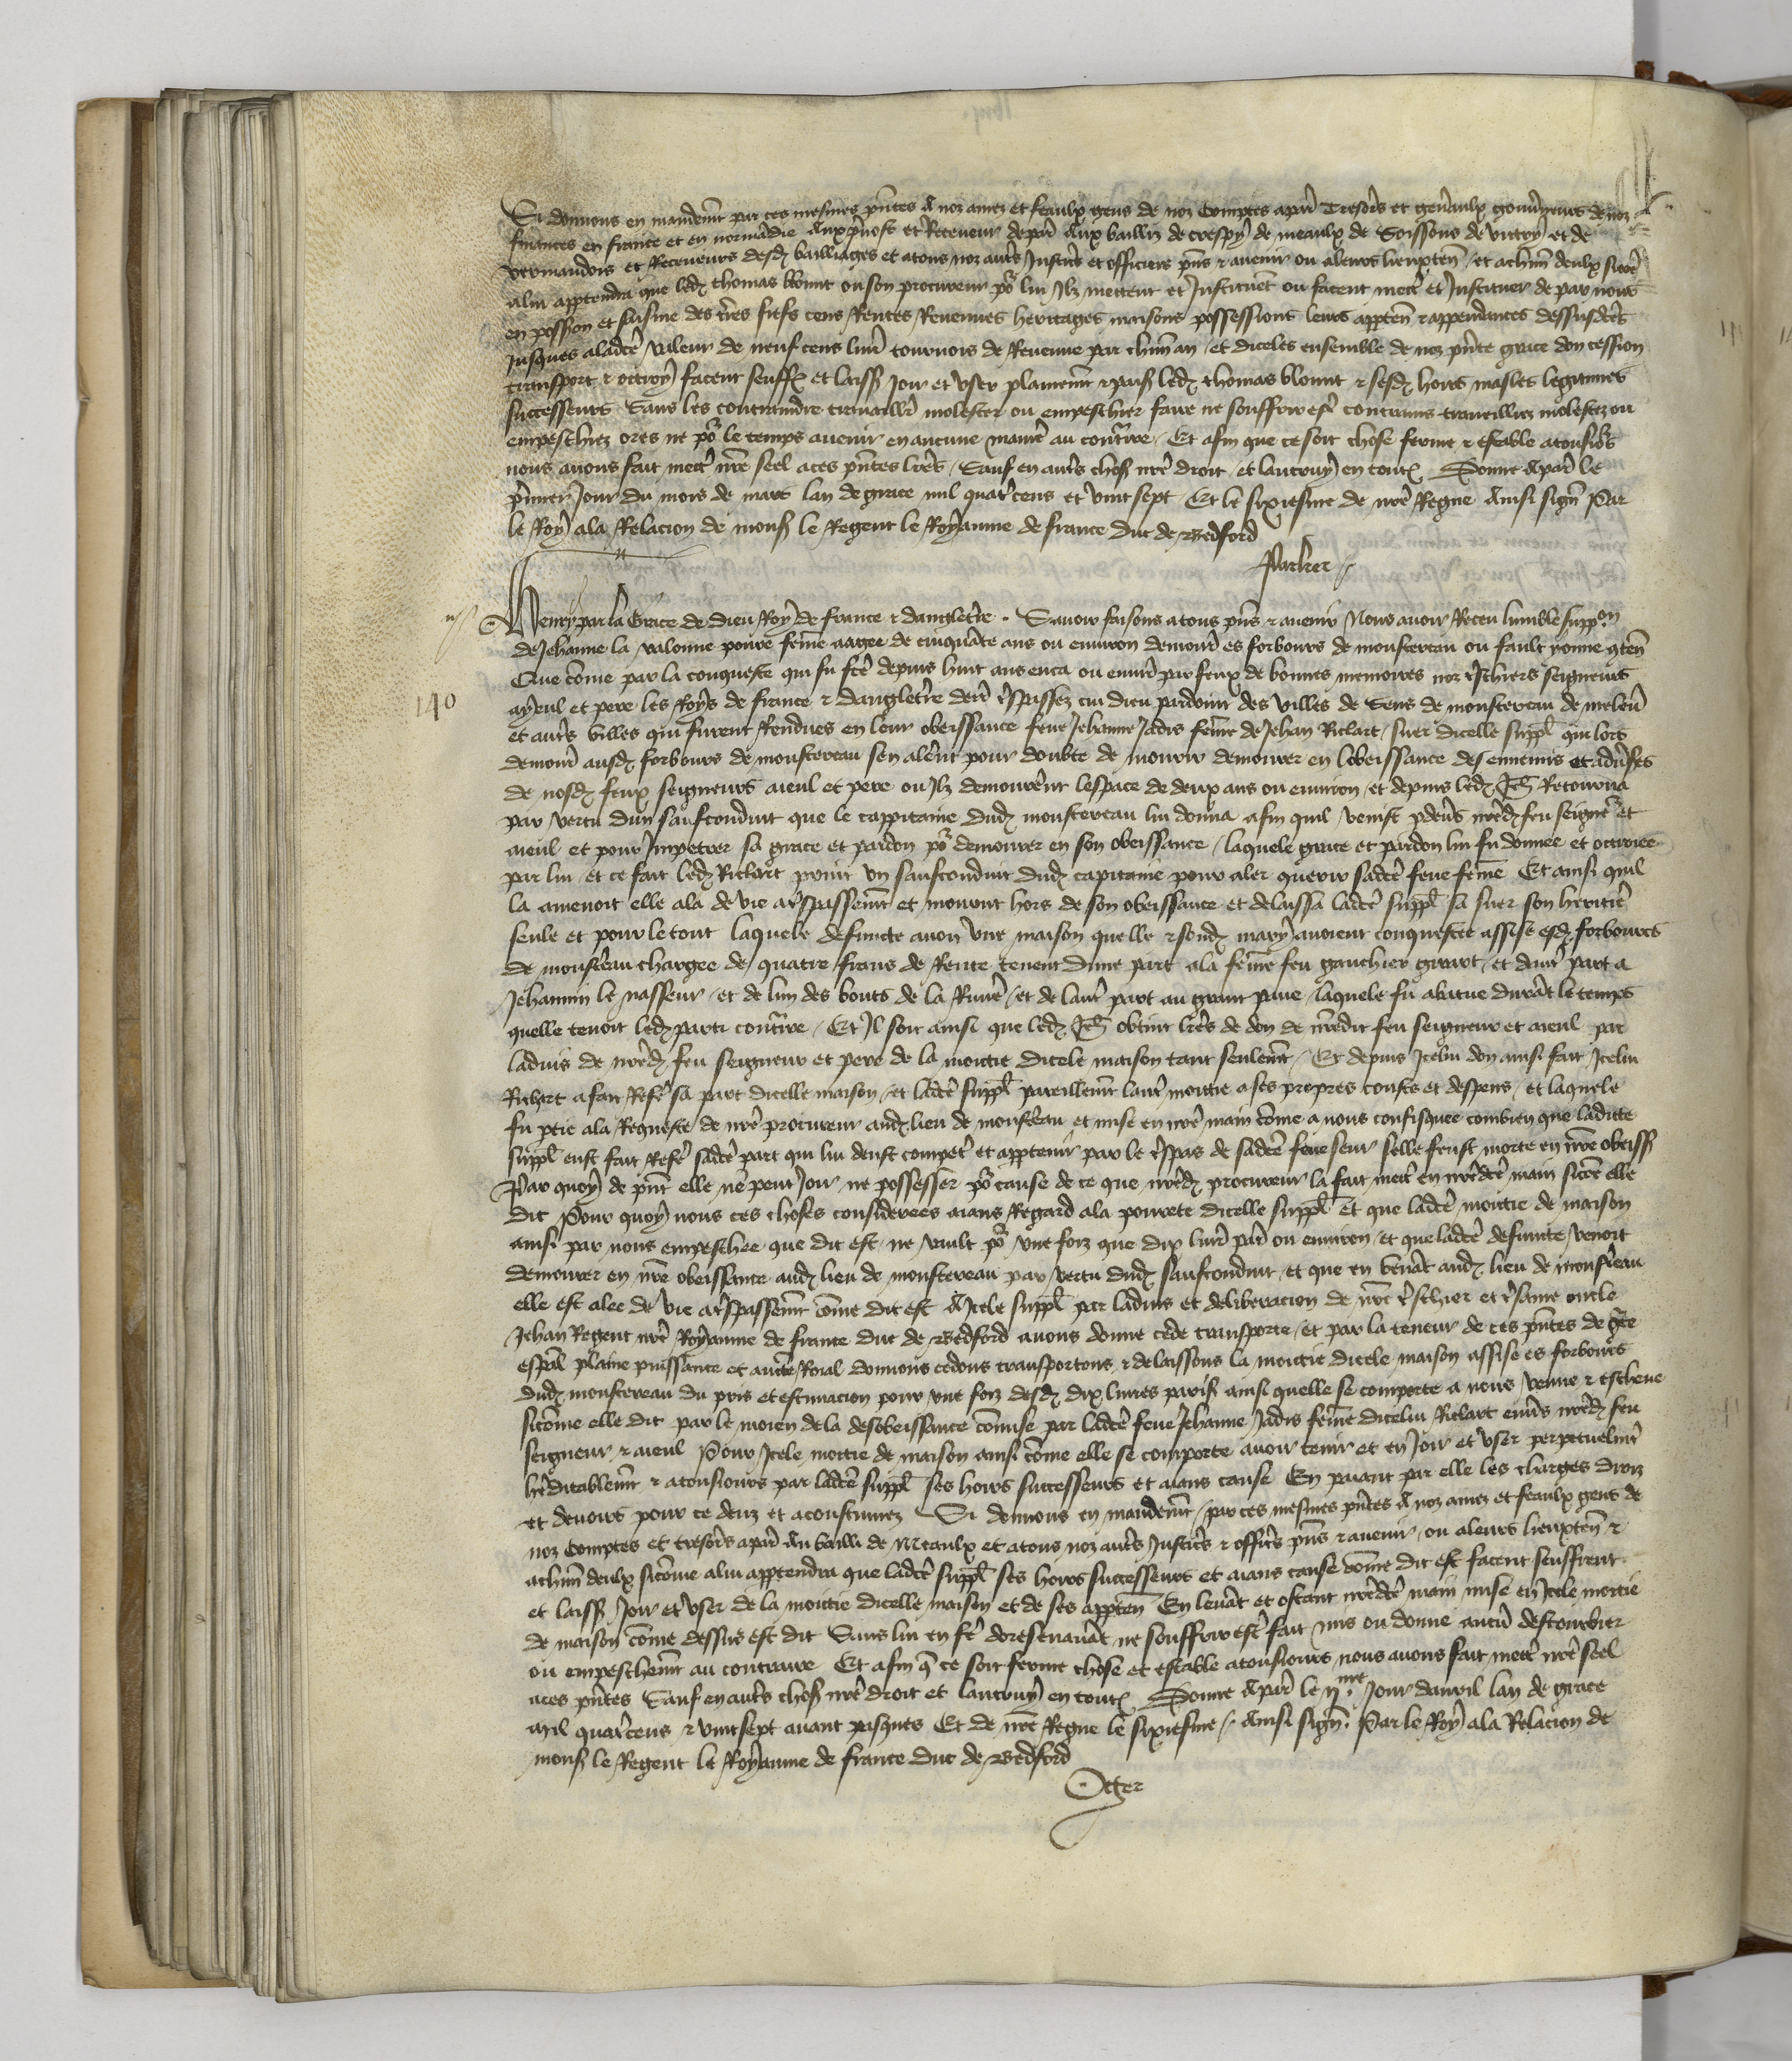 Si donnons en mandemt par ces mesmes pntes A noz amez et feaulx gens de noz comptes apar Tresors et genaulx gouvneurs de noz
finances en france et en normadie Aux pvost et Receveur de par Aux bailliz de crespy de meaulx de Soissons de vitry et de
vermandois et Receveurs desd bailliages et atous noz autrs Justicrs et officiers pns & avenir ou aleurs lieuxten et achun deulx sicoe
alui apptendra que led thomas blount ou son procureur po lui Ilz mettent et Instituent ou facent mectr et Instituer de par nous
en possession et saisine des tres fiefs cens Rentes Revenues heritages maisons possessions leurs apptenn & appendances dessusdcts
Jusques aladcte valeur de neuf cens livr tournois de Revenue par chun an et diceles ensemble de noz pnte grace don cession
transport & ottroy facent seuffr et laiss Joir et user plainemt & paisi led thomas blount & sesd hoirs masles legitimes
successeurs Sans les contraindre travaillr molester ou empeschier faire ne souffrir estr contrains travailliez molestez ou
empeschiez ores ne po le temps avenir en aucune manie au contrre Et afin que ce soit chose ferme & estable atousiours
nous avons fait mectr nre seel aces pntes lres Sauf en autrs chos nre droit et lautruy en toutes Donne Apar le
pmier Jour du mois de mars lan de grace mil quatrcens et vint sept Et le sixiesme de nre Regne Ainsi signe Par
le Roy ala Relacion de mons le Regent le Royaume de france duc de Bedford
Parker
Henry par la Grace de dieu Roy de france & dangletre . Savoir faisons atous pns & avenir Nous avoir Receu lumble suppon
de Jehanne la valonne povre feme aagee de cinquate ans ou environ demour es forbours de monstereau ou fault yonne gten
140
Que come par la conqueste qui fu fcte depuis huit ans enca ou envir par feux de bonnes memoires noz tschiers seigneurs
ayeul et pere les Roys de france & dangletre derr tspassez cui dieu pardoint des villes de Sens de monstereau de meleun
et autrs villes qui furent Rendues en leur obeissance feue Jehanne Jadis feme de Jehan Richart suer dicelle suppl qui lors
demour ausd forbours de monstereau sen alerent pour doubte de mourir demourer en lobeissance des ennemis et advses
de nosd feux seigneurs aieul et pere ou Ilz demourerent lespace de deux ans ou environ et depuis led Ich Retourna
par vertu dun saufconduit que le cappitaine dud monstereau lui donna afin quil venist pdevs nred feu seignr et
aieul et pour Impetrer sa grace et pardon po demourer en son obeissance laquele grace et pardon lui fu donnee et octroiee
par lui et ce fait led Richart print un saufconduit dud capitaine pour aler querir sadcte feue feme Et ainsi quil
la amenoit elle ala de vie atspassemt et mourut hors de son obeissance et delaissa ladcte suppl sa suer son heritiere
seule et pour le tout laquele defuncte avoit une maison quelle & sond mary avoient conquestee assise esd forbours
de monstreau chargee de quatre frans de Rente tenent dune part ala feme feu gauchier girart et dautr part a
Jehannin le nasseur et de lun des bouts de la Rivire et de lautr part au grant pave laquele fu abatue durat le temps
quelle tenoit led parti contrre Et Il soit ainsi que led Ich obtint lres de don de nredit feu seigneur et aieul par
ladvis de nred feu seigneur et pere de la moictie dicele maison tant seulemt Et depuis Icelui don ainsi fait Icelui
Richart a fait Refe sa part dicelle maison et ladcte suppl pareillemt lautr moictie a ses propres cousts et despens et laquele
fu ptie ala Requeste de nre procureur aud lieu de monstreau et mise en nre main come a nous confisquee combien que laditte
suppl eust fait Refe sadcte part qui lui deust competr et apptenir par le tspas de sadcte feue seur selle feust morte en nre obeiss
Par quoy de pnt elle ne peut Joir ne possesser po cause de ce que nred procureur la fait mectr en nredcte main sicoe elle
dit Pour quoy nous ces choses considerees aians Regard ala povrete dicelle suppl Et que ladcte moictie de maison
ainsi par nous empeschee que dit est ne vault po une foiz que dix livr par ou environ et que ladcte defuncte venoit
demourer en nre obeissance aud lieu de monstereau par vertu dud saufconduit et que en venat aud lieu de monstreau
elle est alee de vie atspassemt come dit est A Icele suppl par ladvis et deliberacion de nre tschier et tsame oncle
Jehan Regent nre Royaume de france duc de Bedford avons donne cede transporte et par la teneur de ces pntes de gce
espal plaine puissance et auctte Roial donnons cedons transportons & delaissons la moictie dicele maison assise es forbours
dud monstereau du pris et estimacion pour une foiz desd dix livres parisi ainsi quelle se comporte a nous venue & escheue
sicome elle dit par le moien de la desobeissance comise par ladcte feue Jehanne Jadis feme dicelui Richart envs nred feu
seigneur & aieul Pour Icele moictie de maison ainsi come elle se comporte avoir tenir et en Joir et user perpetuelmt
hrditablemt & atousiours par ladcte suppl ses hoirs successeurs et aians cause En paiant par elle les charges droiz
et devoirs pour ce deuz et acoustumez Si donnons en mandemt par ces mesmes pntes A noz amez et feaulx gens de
noz comptes et tresors apar Au bailli de Meaulx et atous noz autrs Justicrs & officrs pns & avenir ou aleurs lieuxten &
achun deulx sicome alui apptendra que ladcte suppl ses hoirs successeurs et aians cause come dit est facent seuffrent
et laiss Joir et user de la moictie dicelle maison et de ses apptenn En levat et ostant nredcte main mise en Icele moictie
de maison come dessus est dit Sans lui en fe doresenavat ne souffrir estr fait mis ou donne aucun destourbier
ou empeschemt au contraire Et afin q ce soit ferme chose et estable atousiours nous avons fait mectr nre seel
aces pntes Sauf en autrs chos nre droit et lautruy en toutes Donne Apar le IIme Jour davril lan de grace
mil quatrcens & vint sept avant pasques Et de nre Regne le sixiesme . Ainsi signe . Par le Roy ala Relacion de
mons le Regent le Royaume de france duc de Bedford
Oger